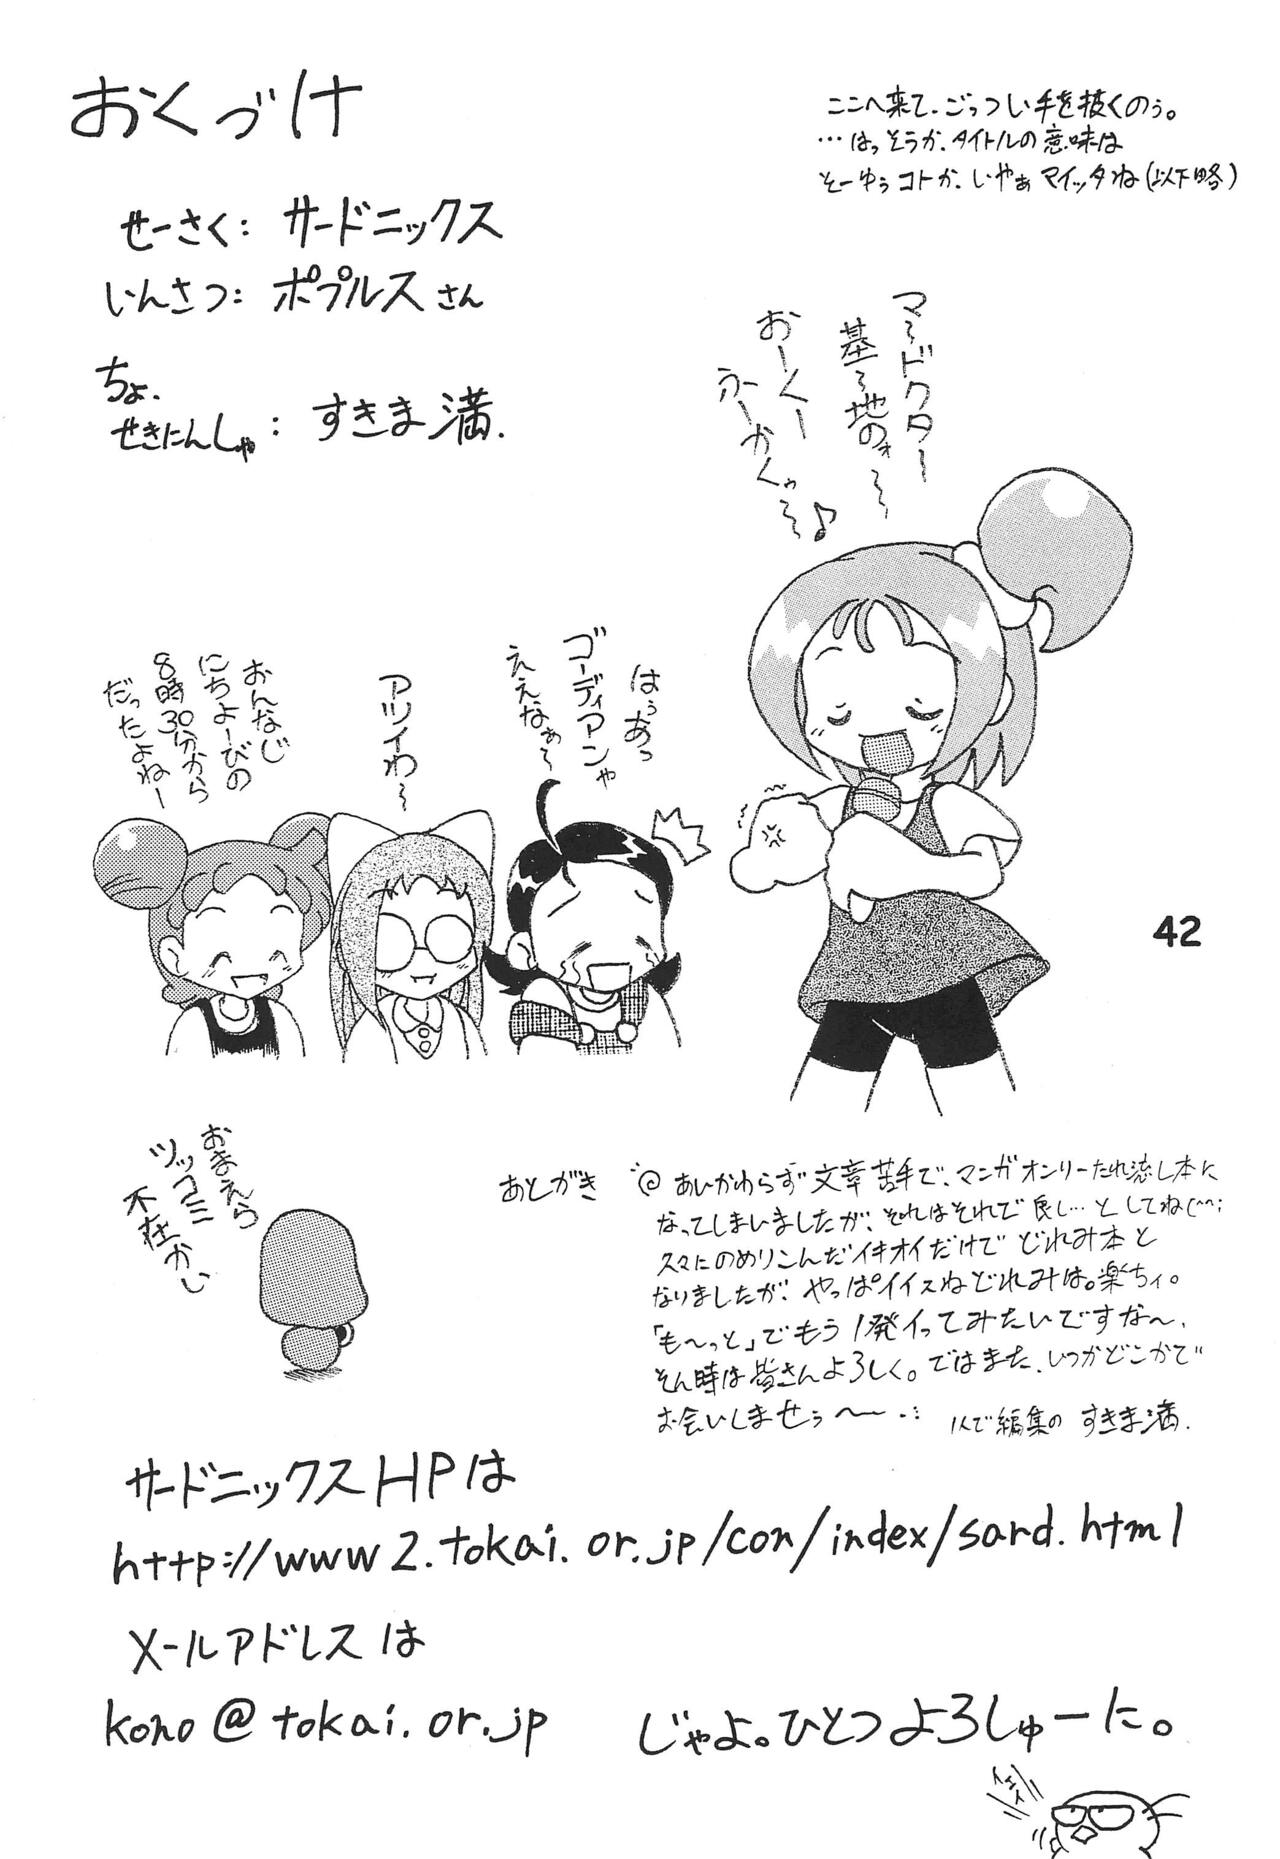 おくづけ
ここへ来て、ごっつい手を抜くのぅ。
…はっそうか、タイトルの意味は
そーゆぅコトか、いやぁマイッタね(以下略)
せーさく：サードニックス
いんさつ：ポプルスさん
ちょ.
せきにんしゃ：すきま満.
マ〜ドクター
基〜地のォ〜〜
おーくー
ふーかくゥ〜〜♪
はぅあっ
ゴーディアンや
ええなぁ〜
アツイわ〜
おんなじ
にちよーびの
8時30分から
だったよねー
42
おまえら
ツッコミ
不在かい
あとがき
あいかわらず文章苦手で、マンガオンリーたれ流し本に
なってしまいましたが、それはそれで良し…としてね(^^;
久々にのめりこんだイキオイだけで どれみ本と
なりましたが、やっぱイイスねどれみは。楽ちィ。
「も〜っと」でもう1発イってみたいですな〜、
そん時は皆さんよろしく。ではまた、いつかどこかで
お会いしませぅ〜
1人で編集の すきま満.
サードニックスHPは
http://www2.tokai.or.jp/con/index/sard.html
メールアドレスは
kono@tokai.or.jp
じゃよ。ひとつよろしゅーに。
イエイ